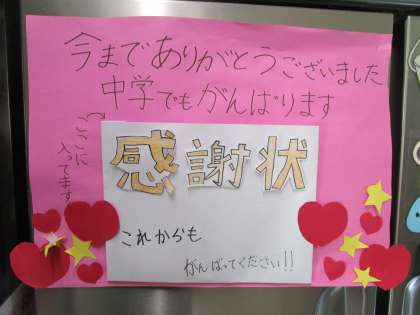 今までありがとうございました
中学でもがんばります
ここに
入ってます
感謝状
これからも
がんばってください!!